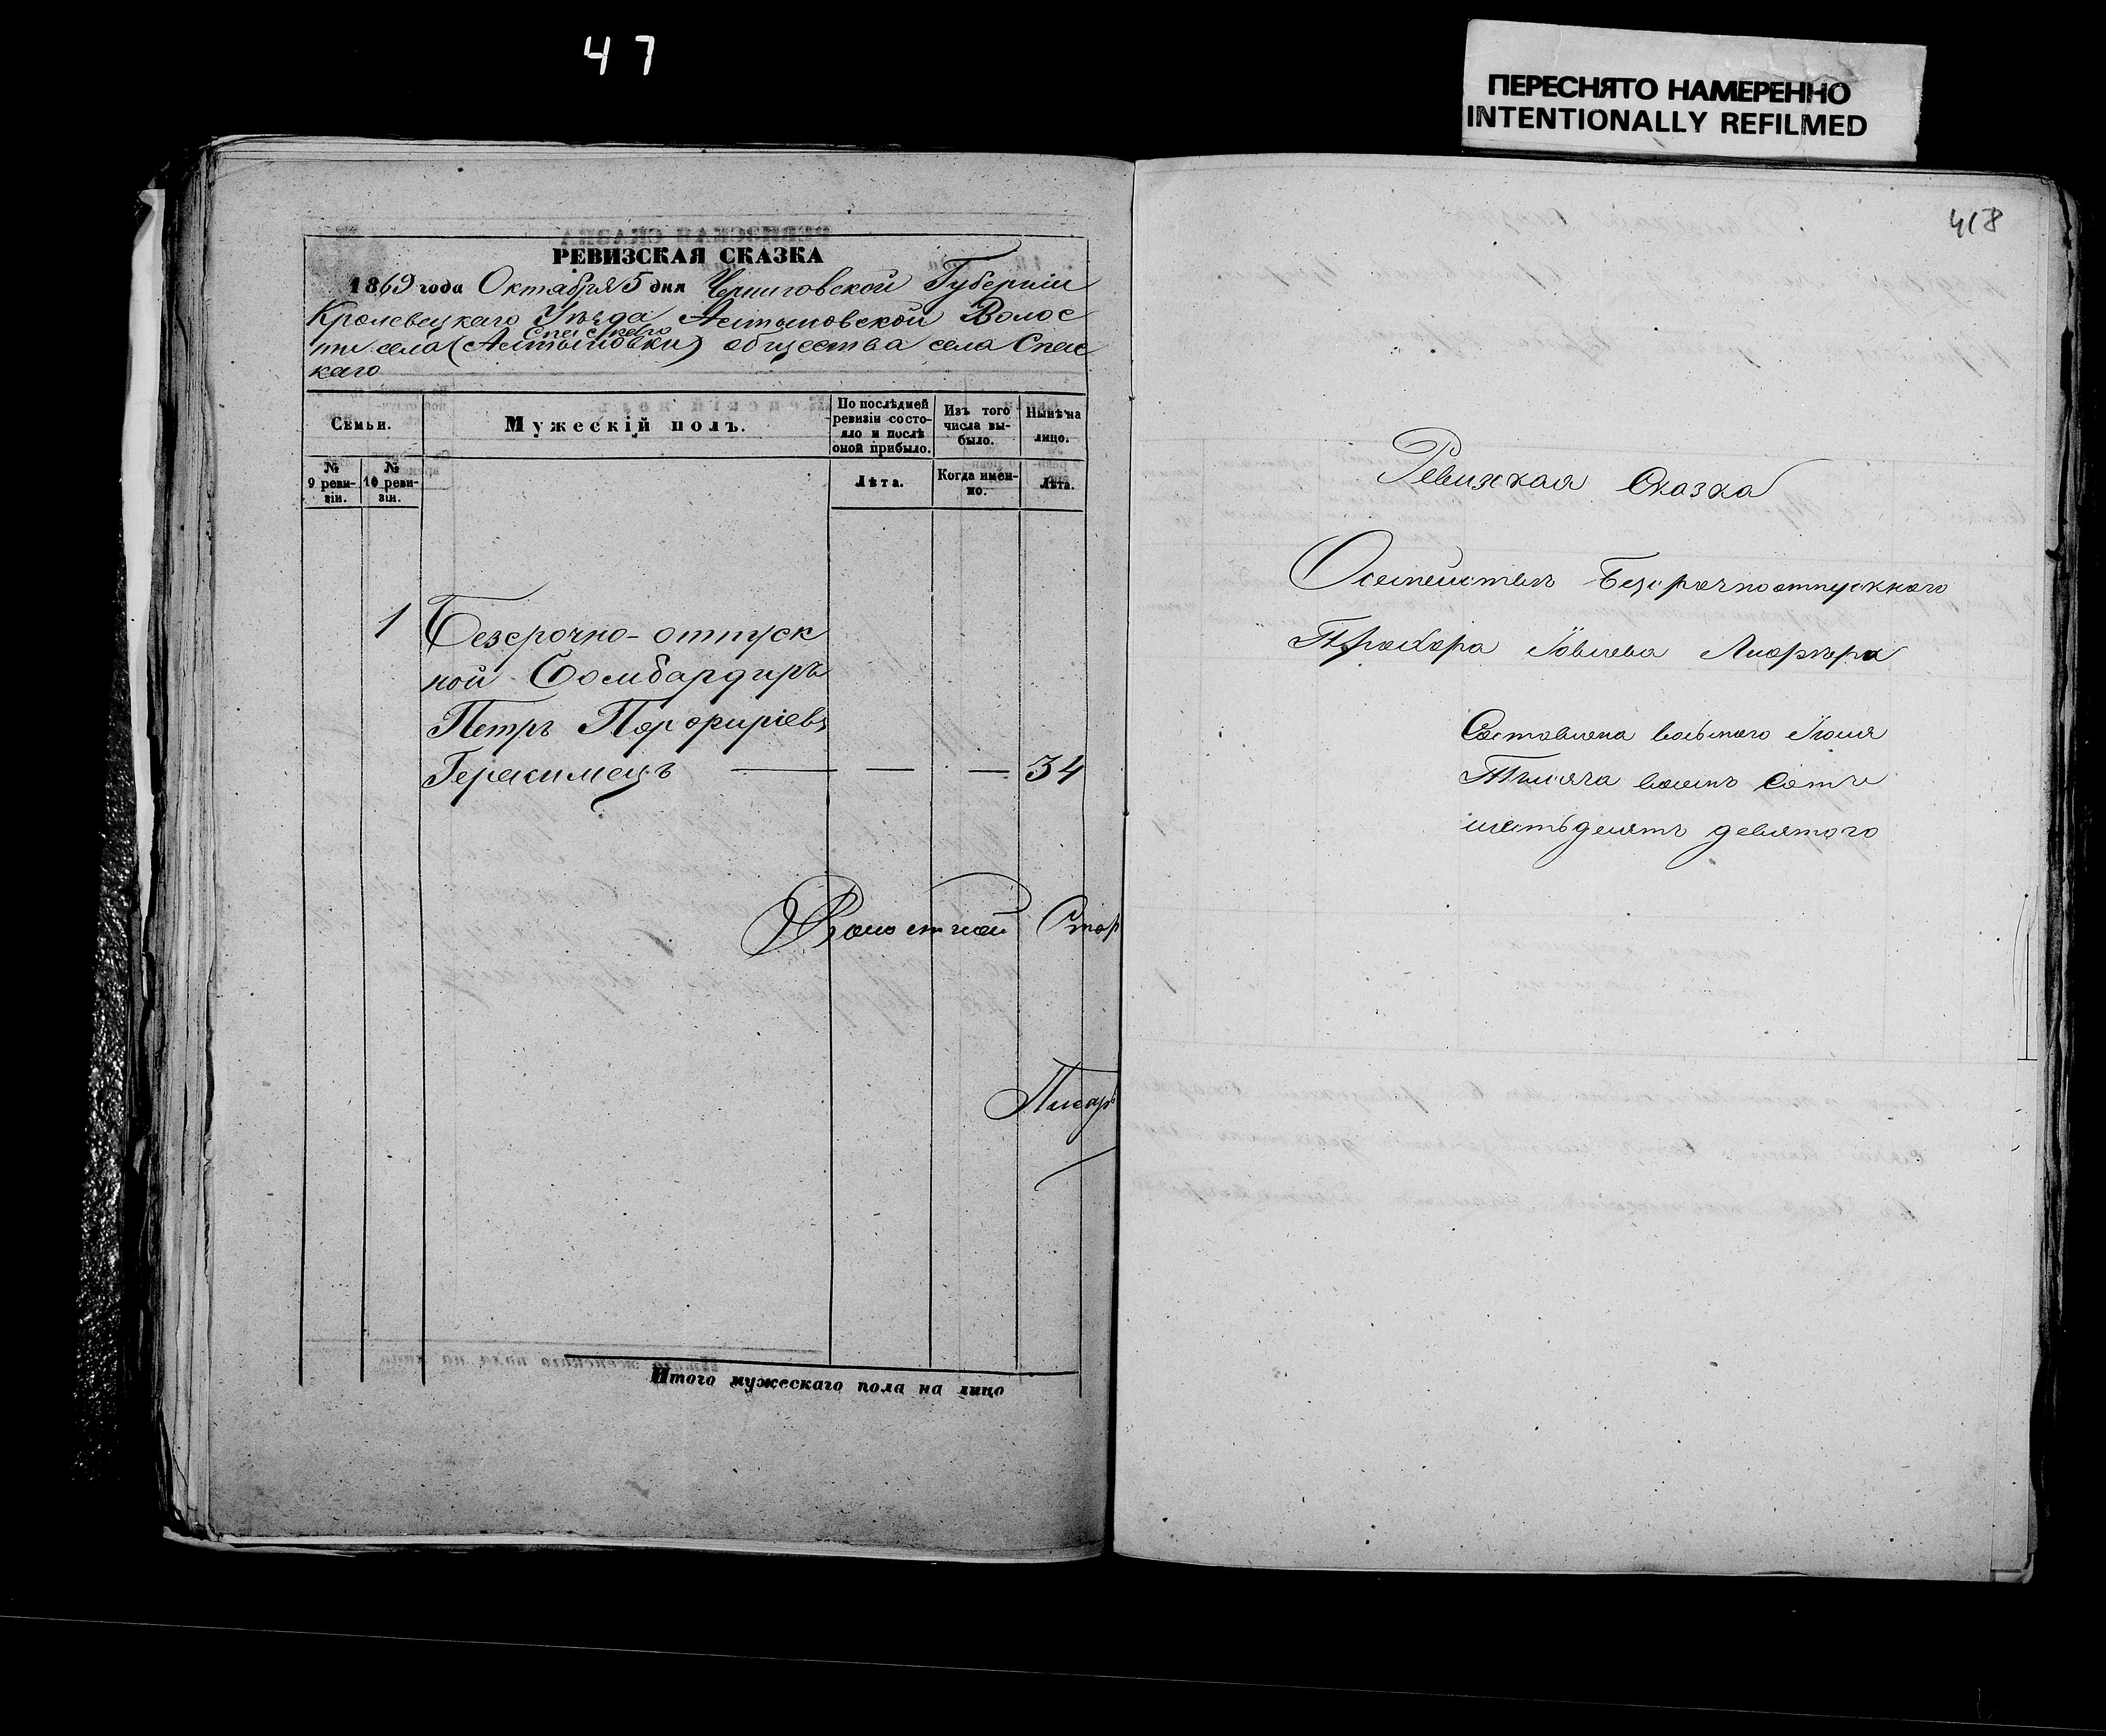 47
ПЕРЕСНЯТО НАМЕРЕННО
INTENTIONALLY REFILMED
РЕВИЗСКАЯ СКАЗКА
1869 года Октября 5 дня Черниговской Губерніи
Кролевецкаго Уѣзда Алтыновской Волос
Спасскаго
ти села (Алтыновки) общества села Спас
каго
Семьи.
Мужескій полъ.
По послѣдней ревизіи состояло и послѣ оной прибыло.
Изъ того числа выбыло.
Нынѣ на лицо.
№ 9 ревизіи.
№ 10 ревизіи.
Лѣта.
Когда именно.
Лѣта.
1 Безсрочно-отпуск
ной Бомбардиръ
Петръ Порфиріевъ
Герасимецъ — — — 34
Волостной Стар
Писарь
Итого мужескаго пола на лицо
418
Ревизская Сказка
Осемействѣ Безсрочноотпускнаго
Прохора Іовлева
Составлена восьмого Іюля
Тысяча восемь сотъ
шестьдесятъ девятого